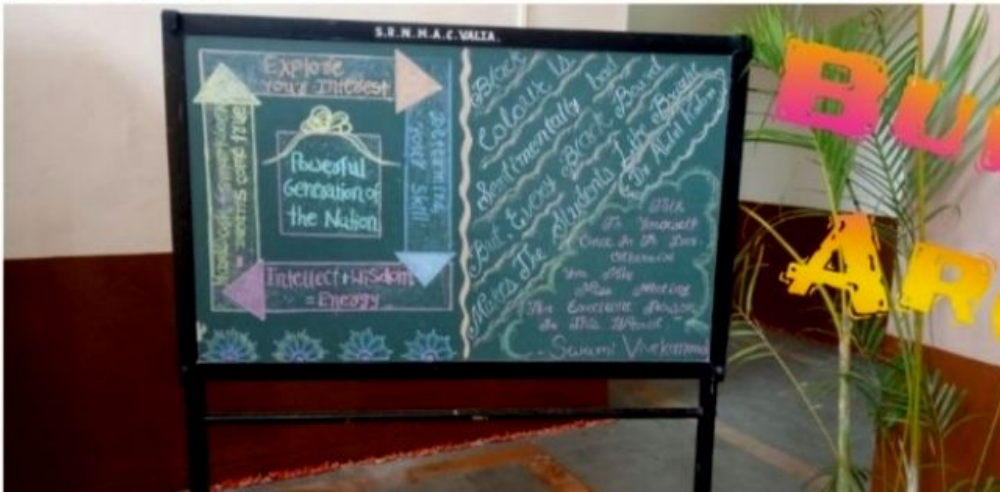 S.R.N.H.A.C. VALIA.
Explore
your Interest
Determine
your skill
Intellect + Wisdom
= Energy
come true
Powerful
Generation of
the Nation
Black
Colour Is
Sentimentally bad
But, Every Black Board
Makes The Students Life Bright
Dr. Abdul Kalam
Talk
To Yourself
Once In A Day
Otherwise
You May
Miss Meeting
An Excellent Person
In This World
- Swami Vivekanand
BU
AR